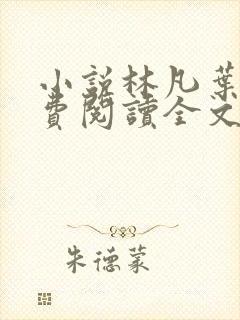 小說林凡葉
費閱讀全文
朱德蒙